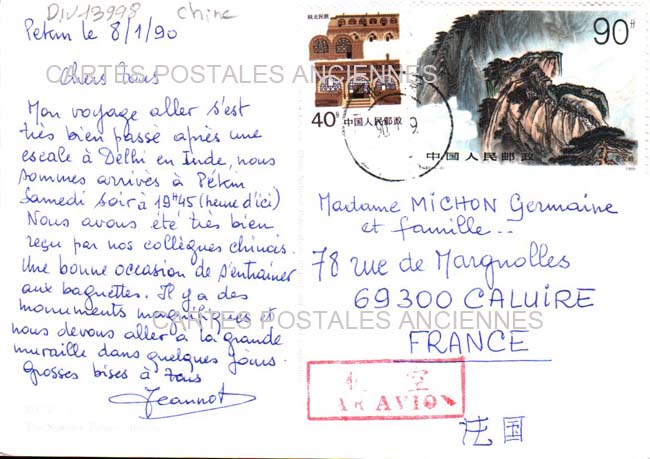 DIV13998 Chine
Pékin le 8/1/90
Chers Tous
Mon voyage aller s'est
très bien passé après une
escale à Delhi en Inde, nous
sommes arrivés à Pékin
Samedi soir à 19H45 (heure d'ici)
Nous avons été très bien
reçu par nos collègues chinois.
Une bonne occasion de s'entrainer
aux baguettes. Il y a des
monuments magnifiques et
nous devons aller à la grande
muraille dans quelques jours.
Grosses bises à Tous
Jeannot
陕北民居
40分 中国人民邮政
90分
中国人民邮政
1989
90 1 9
CARTES POSTALES ANCIENNES
Madame MICHON Germaine
et famille..
78 rue de Margnolles
69300 CALUIRE
CARTES POSTALES ANCIENNES
FRANCE
航空
PAR AVION
法国